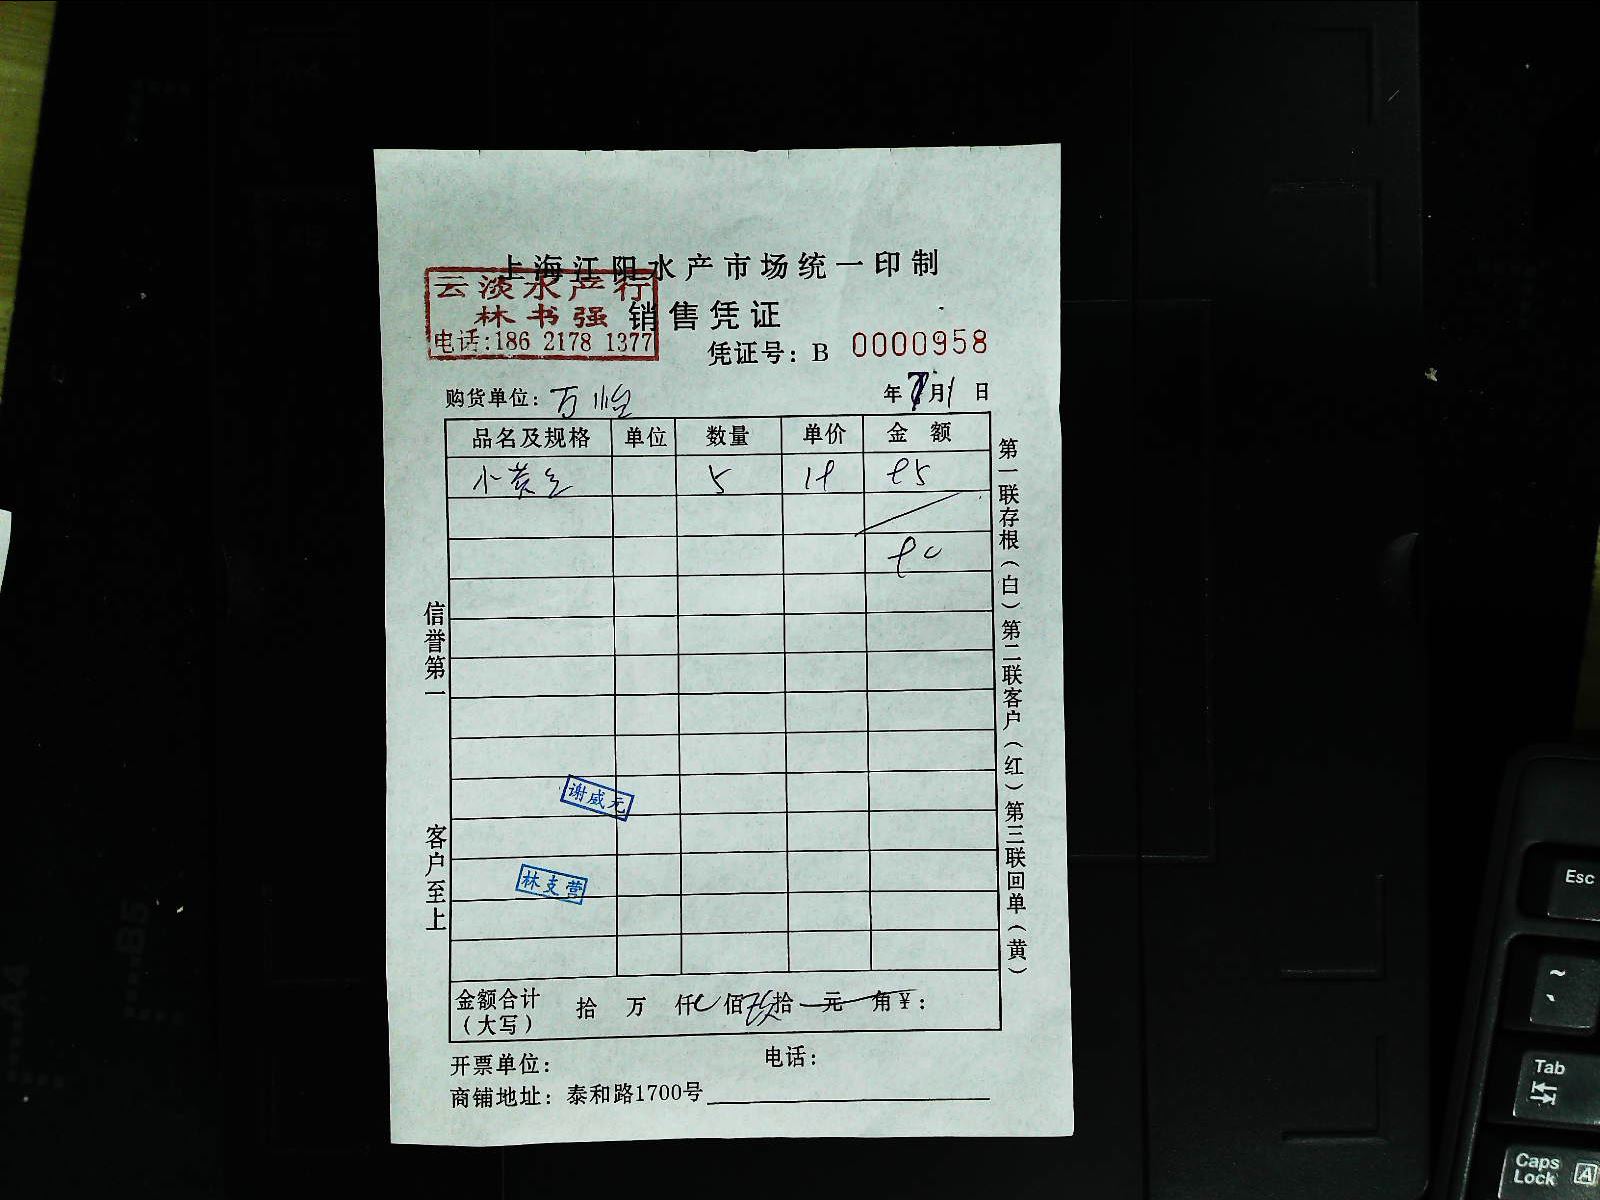 上海江阳水产市场统一印制
云淡水产行
林书强
电话:186 2178 1377
销售凭证
凭证号: B 0000958
购货单位: 万怡
年 7月1 日
品名及规格 单位 数量 单价 金 额
小黄鱼 5
信誉第一
客户至上
第一联存根(白)第二联客户(红)第三联回单(黄)
谢威元
林支营
金额合计 拾 万 仟 佰 拾 元 角 ¥:
(大写)
开票单位: 电话:
商铺地址: 泰和路1700号
Esc
~
Tab
Caps Lock A
A4
B5